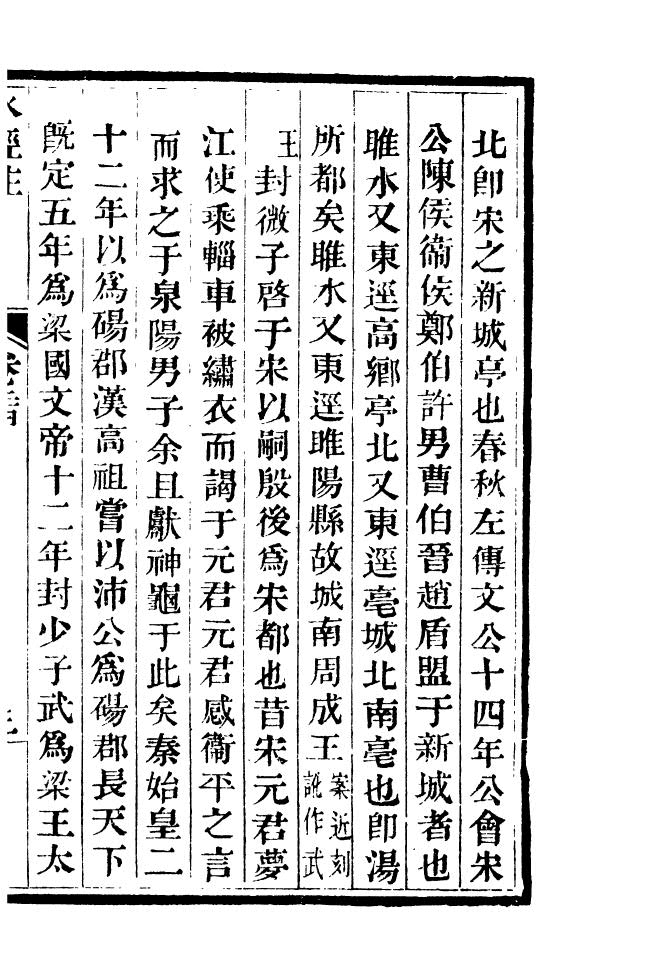 北卽宋之新城亭也春秋左傳文公十四年公會宋
公陳侯衞侯鄭伯許男曹伯晉趙盾盟于新城者也
睢水又東逕高鄉亭北又東逕亳城北南亳也卽湯
所都矣睢水又東逕睢陽縣故城南周成王案近刻訛作武
王封微子啓于宋以嗣殷後爲宋都也昔宋元君夢
江使乘輜車被繡衣而謁于元君元君感衞平之言
而求之于泉陽男子余且獻神龜于此矣秦始皇二
十二年以爲碭郡漢高祖嘗以沛公爲碭郡長天下
旣定五年爲梁國文帝十二年封少子武爲梁王太
水經注